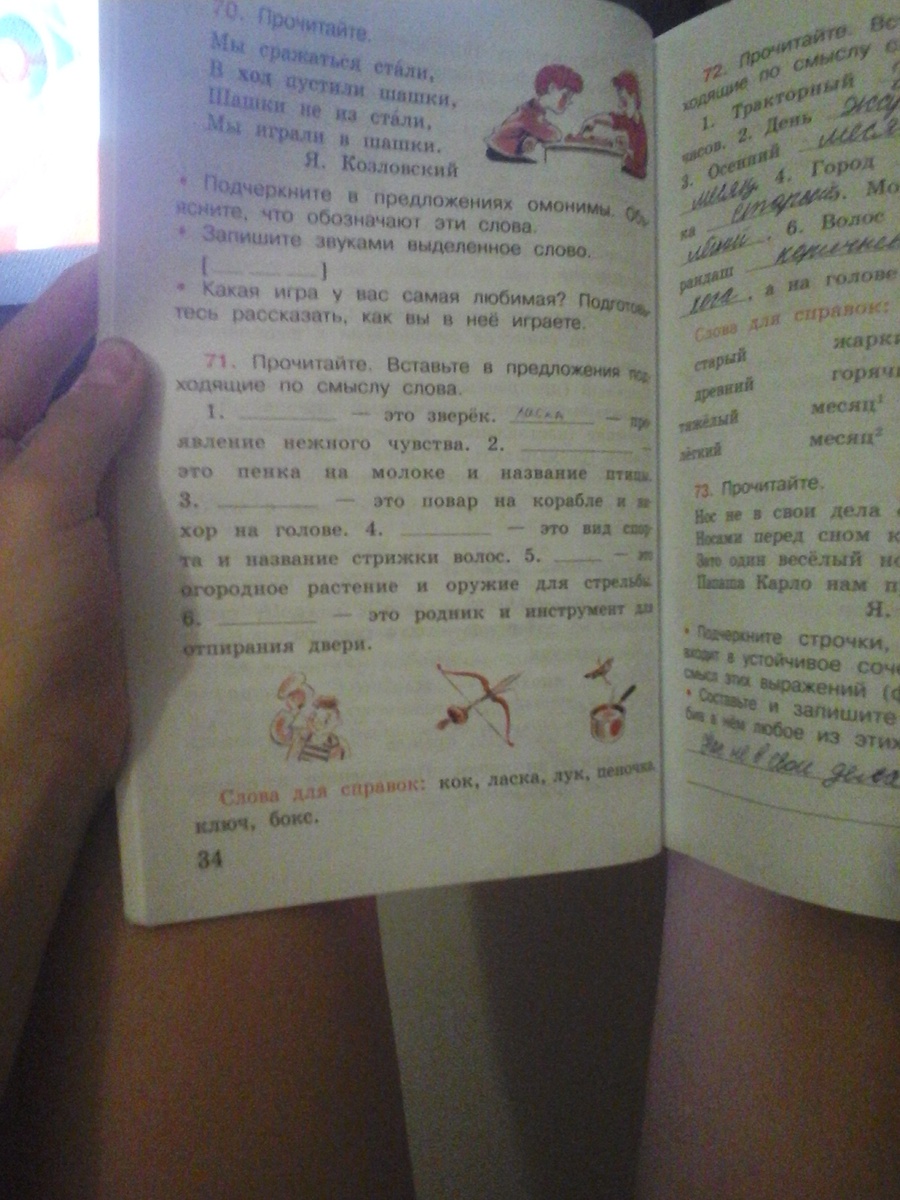 70. Прочитайте.
Мы сражаться ста́ли,
В ход пустили шашки,
Шашки не из ста́ли,
Мы играли в шашки.
Я. Козловский
• Подчеркните в предложениях омонимы. Объ-
ясните, что обозначают эти слова.
• Запишите звуками выделенное слово.
[___ ___ ___]
• Какая игра у вас самая любимая? Подготовь-
тесь рассказать, как вы в неё играете.
71. Прочитайте. Вставьте в предложения под-
ходящие по смыслу слова.
1. ________ — это зверёк. ласка — про-
явление нежного чувства. 2. ________ —
это пенка на молоке и название птицы.
3. ________ — это повар на корабле и ви-
хор на голове. 4. ________ — это вид спор-
та и название стрижки волос. 5. ____ — это
огородное растение и оружие для стрельбы.
6. ________ — это родник и инструмент для
отпирания двери.
Слова для справок: кок, ласка, лук, пеночка,
ключ, бокс.
34
72. Прочитайте.
ходящие по смыслу
1. Тракторный
часов. 2. День
3. Осенний
месяц. 4. Город
ка старый.
6. Волос
рандаш
, а на голове
Слова для справок:
старый
древний горяч
тяжёлый месяц¹
лёгкий месяц²
73. Прочитайте.
Нос не в свои дела
Носами перед сном
Зато один весёлый
Папаша Карло нам
Я.
• Подчеркните строчки,
входит в устойчивое
смысл этих выражений
• Составьте и запишите
в нём любое из этих
не в свои дела